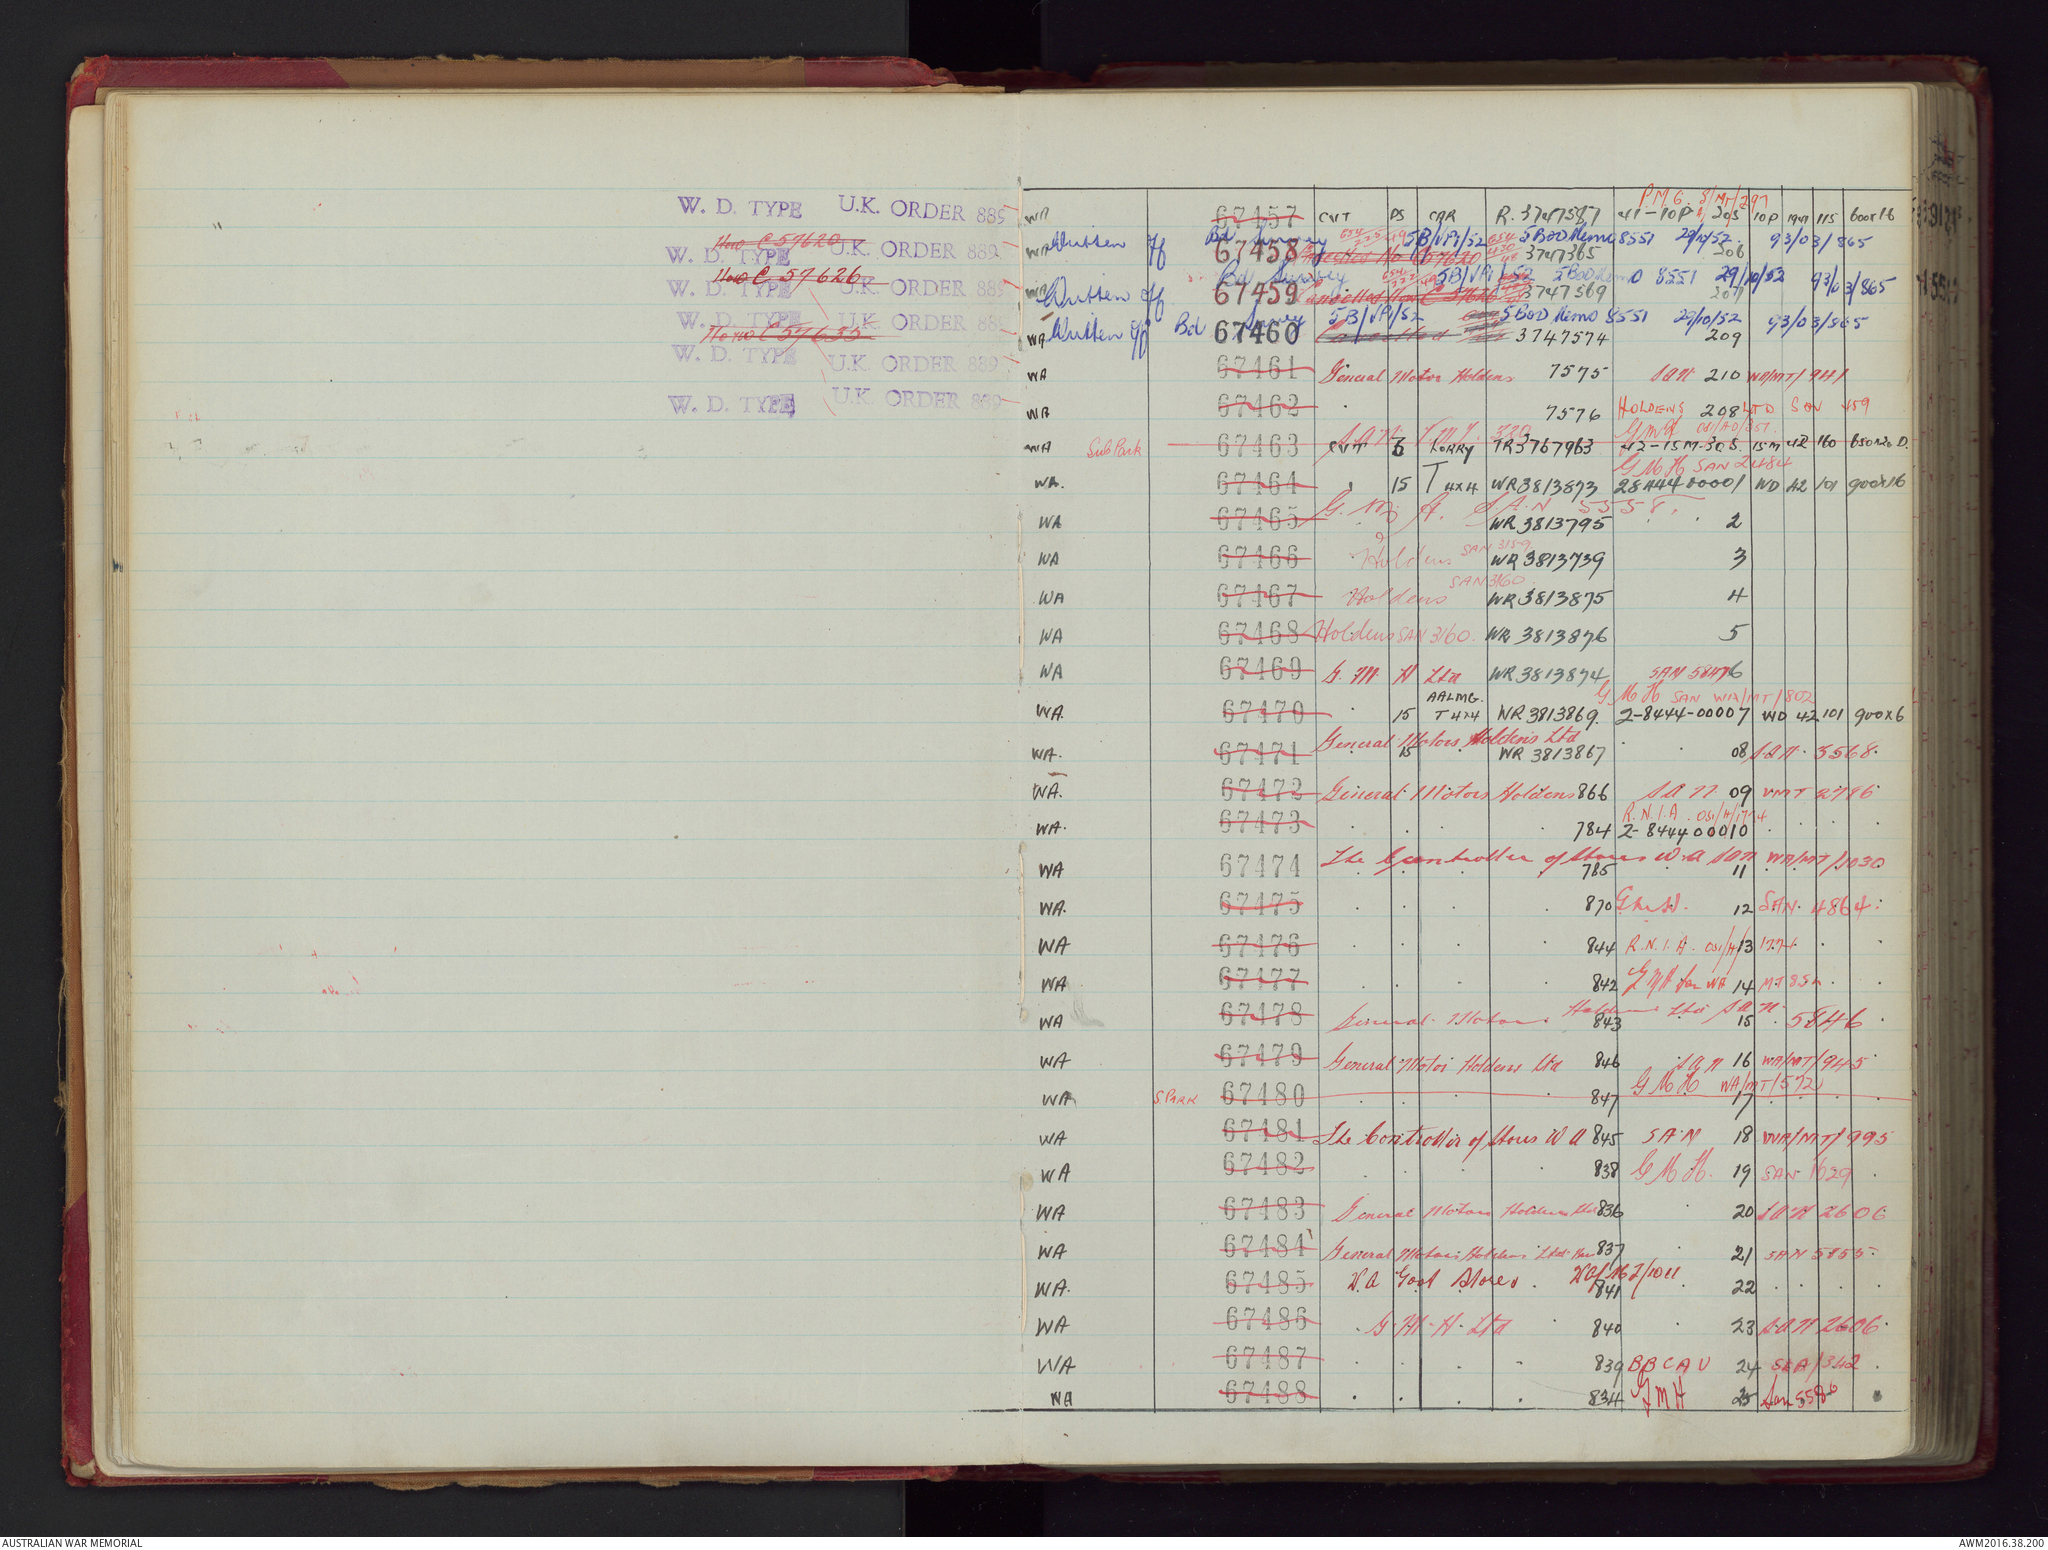 W. D. TYPE U.K. ORDER 889
Now C 57620 U.K. ORDER 889
W. D. TYPE
Now C 57626
W. D. TYPE U.K. ORDER 889
W. D. TYPE U.K. ORDER 889
Now C 57635
W. D. TYPE U.K. ORDER 889
W. D. TYPE U.K. ORDER 889
P.M.G. S/MT/297
WA 67457 CVT PS CAR R.3747587 41-10P 205 10P 1941 115 600x16
WA Written Off Bd Survey 67458 5B/VP1/52 5 BOD Memo 8551 29/10/52 93/03/865
3747565 206
WA Written Off Bd Survey 67459 5B/VP1/52 5 BOD Memo 8551 29/10/52 93/03/865
3747569 207
WA Written Off Bd Survey 67460 5B/VP1/52 5 BOD Memo 8551 29/10/52 93/03/865
Cancelled 3747574 209
WA 67461 General Motor Holdens 7575 SAN 210 WA/MT/941
WA 67462 7576 HOLDENS 208 LTD SAN 159
WA Sub Park 67463 CVT LORRY TR3767963 42-15M-305 15M 42 160 650x20 D.
GMH SAN 2484
WA. 67464 15 T 4x4 WR3813873 28444-00001 WD 42 101 900x16
G. M. H. SAN 5558.
WA 67465 WR3813795 2
WA 67466 Holdens SAN 3159 WR3813739 3
WA 67467 Holdens SAN 3160 WR3813875 4
WA 67468 Holdens SAN 3160. WR 3813876 5
WA 67469 G. M. H Ltd WR3813874 SAN 5847 6
AALMG. GMH SAN WA/MT/802
WA. 67470 15 T 4x4 WR3813869. 2-8444-00007 WD 42 101 900x6
General Motors Holdens Ltd
WA. 67471 15 WR 3813867 08 SAN. 3568.
WA. 67472 General Motors Holdens 866 SAN 09 VMT 2786
R.N.I.A. OSI/H/1774
WA. 67473 784 2-844400010
The Controller of Stores W.A SAN WA/MT/1030
WA 67474 785 11
WA. 67475 870 G.M.H. 12 SAN. 4864.
WA 67476 844 R.N.I.A. OSI/H/ 13 1774
WA 67477 842 GMH San WA 14 MT 85
WA 67478 General Motors Holdens Ltd 843 SAN 15 5846
WA 67479 General Motor Holdens Ltd 846 SAN 16 WA/MT/945
GMH WA/MT/572
WA S.PARK 67480 847 17
WA 67481 The Controller of Stores W A 845 SAN 18 WA/MT/995
WA 67482 838 GMH. 19 SAN 1629
WA 67483 General Motors Holdens Ltd 836 20 SAN 2606
WA 67484 General Motors Holdens Ltd 837 21 SAN 5855
WA. 67485 W A Govt Stores. 841 22
WA 67486 G. M. H. Ltd 840 23 SAN 2606
WA 67487 839 BBCAU 24 SEA/342
WA 67488 834 GMH 25 San 5586
AUSTRALIAN WAR MEMORIAL
AWM2016.38.200